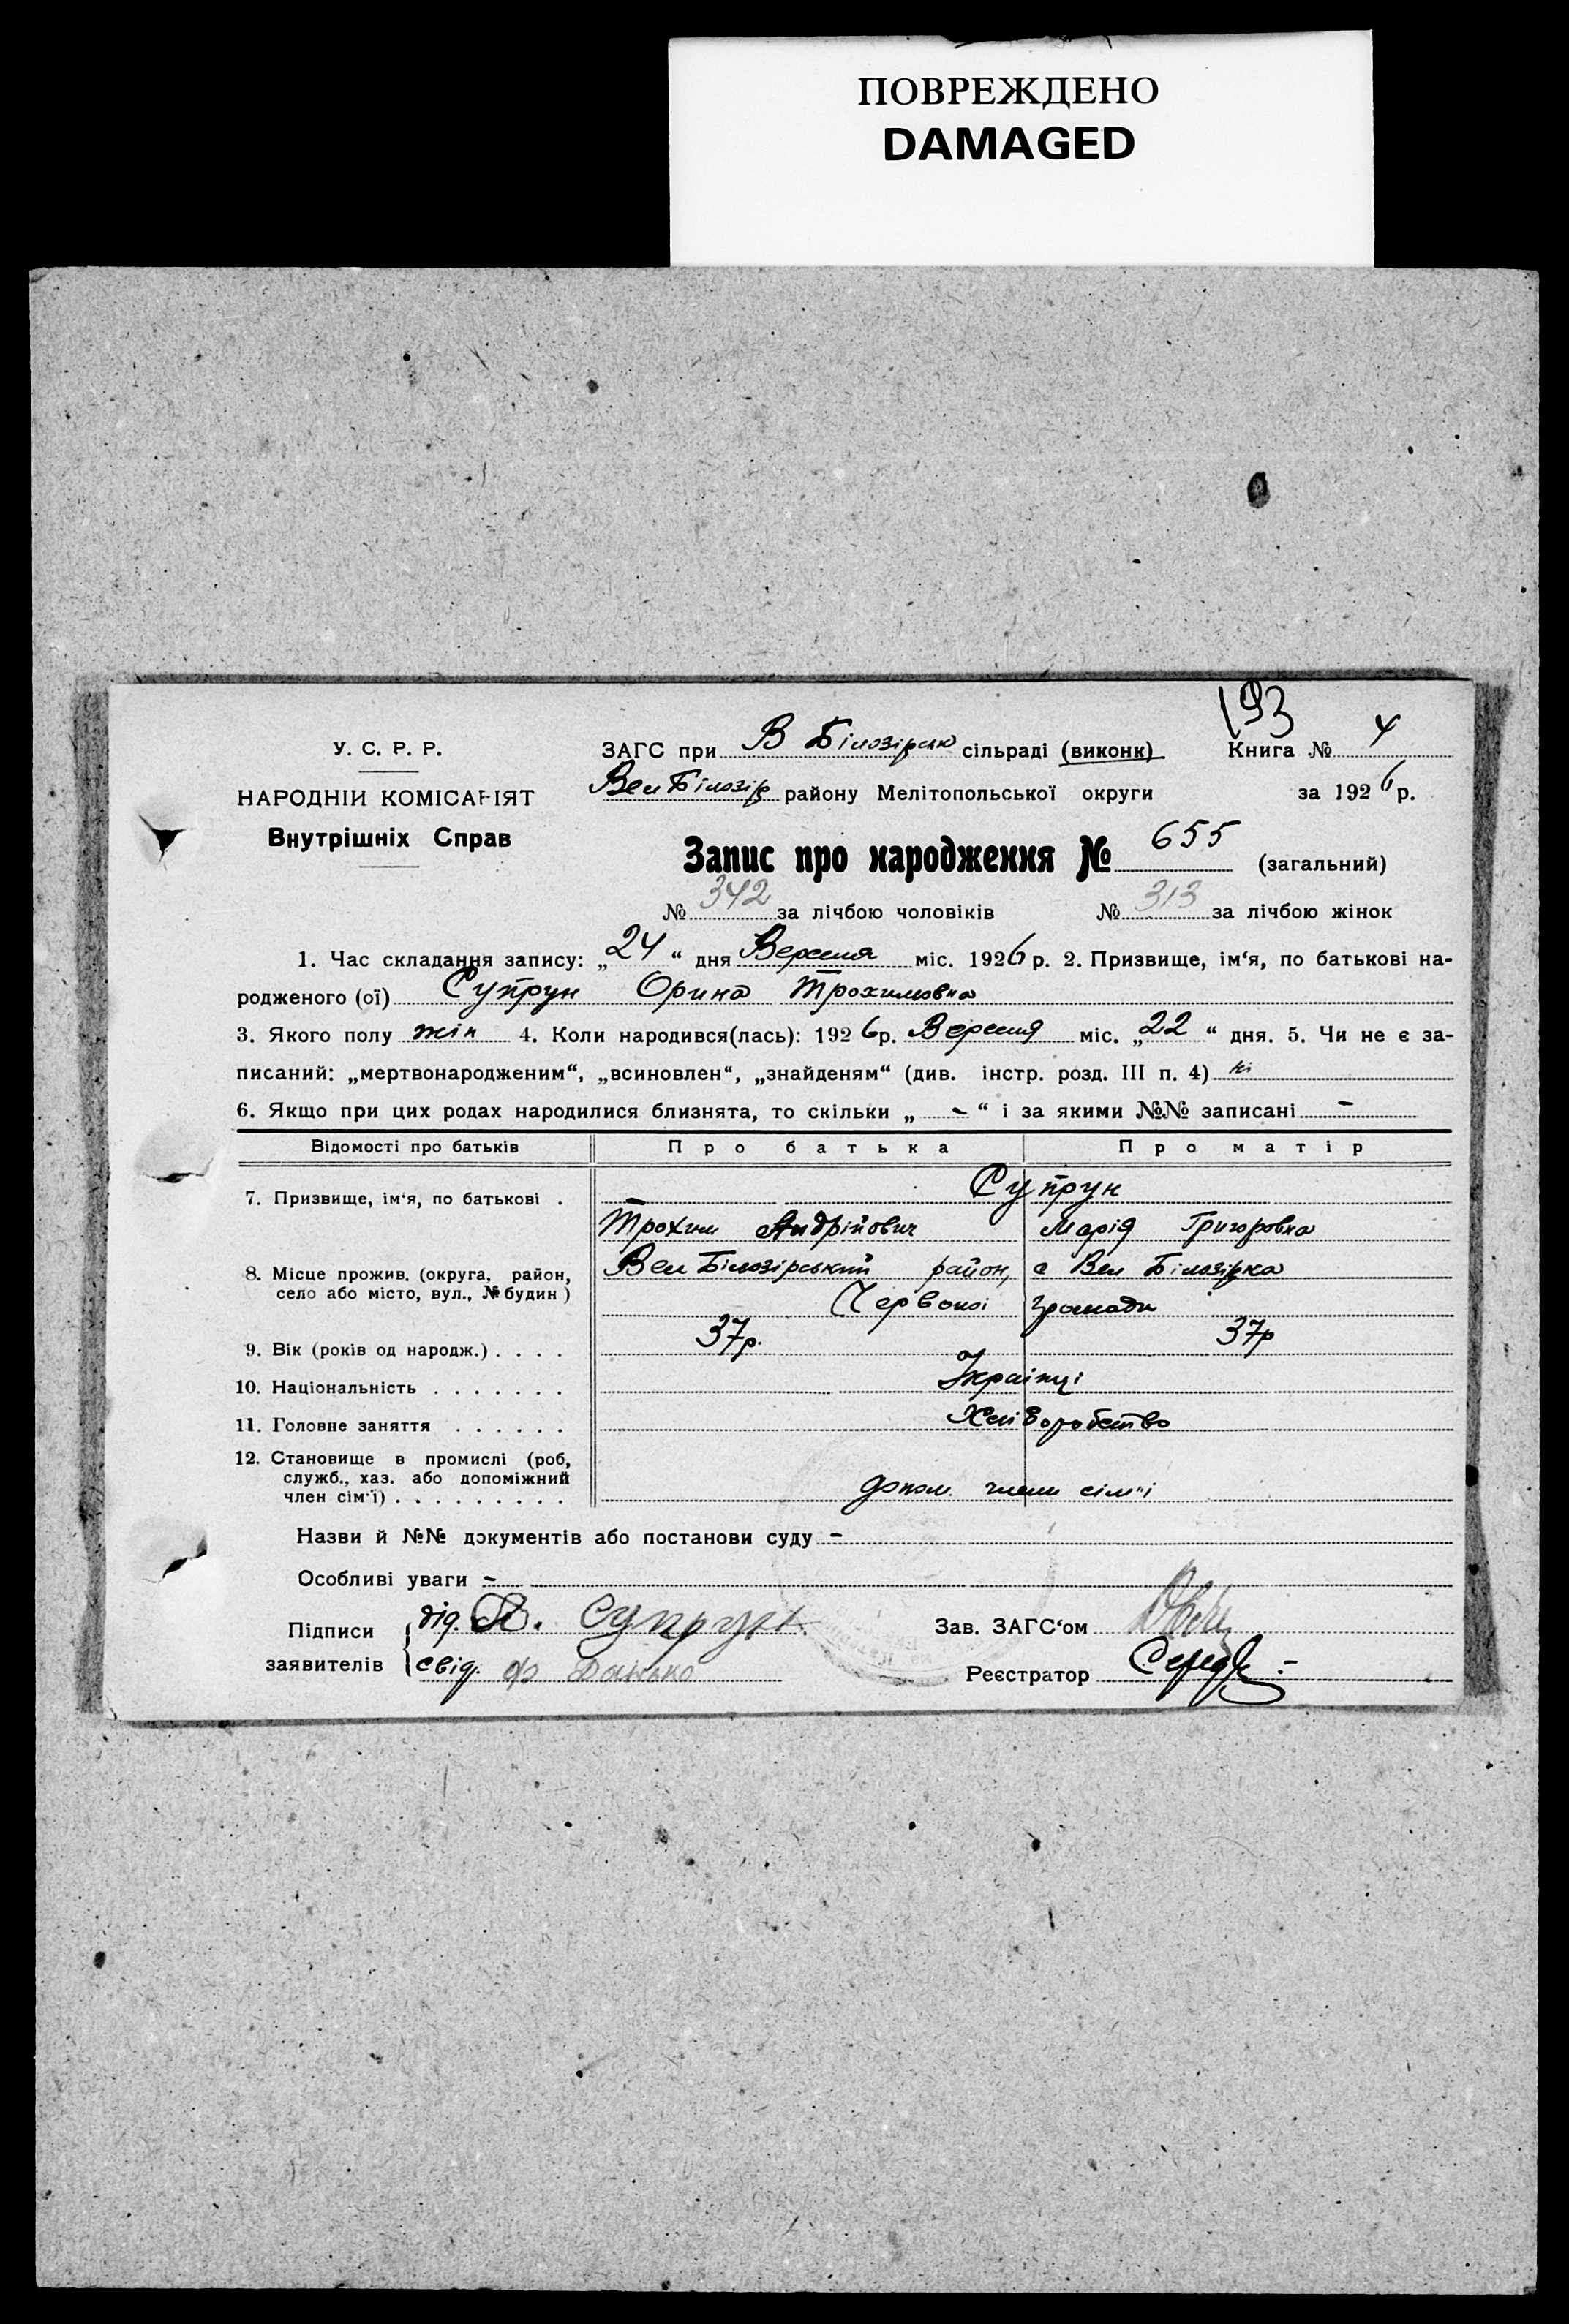 ПОВРЕЖДЕНО
DAMAGED
193
У. С. Р. Р.
ЗАГС при В Білозірськ сільраді (виконк) Книга № 4
НАРОДНІЙ КОМІСАРІЯТ
Вел Білозір району Мелітопольської округи за 1926 р.
Внутрішніх Справ
Запис про народження № 655 (загальний)
№ 342 за лічбою чоловіків № 313 за лічбою жінок
1. Час складання запису: „24“ дня Вересня міс. 1926 р. 2. Призвище, ім‘я, по батькові на-
родженого (ої) Супрун Орина Трохимовна
3. Якого полу жін 4. Коли народився(лась): 1926 р. Вересня міс. „22“ дня. 5. Чи не є за-
писаний: „мертвонародженим“, „всиновлен“, „знайденям“ (див. інстр. розд. III п. 4) ні
6. Якщо при цих родах народилися близнята, то скільки „ - “ і за якими №№ записані -
Відомості про батьків Про батька Про матір
7. Призвище, ім‘я, по батькові . Супрун
Трохим Андрійович Марія Григоровна
8. Місце прожив. (округа, район, Вел Білозірський район, с Вел Білозірка
село або місто, вул., № будин) Червоної громади
9. Вік (років од народж.) . . . . 37р. 37р
10. Національність . . . . . . . Українці
11. Головне заняття . . . . . . Хліборобство
12. Становище в промислі (роб,
служб., хаз. або допоміжний
член сім‘ї) . . . . . . . . . допом. члени сім"ї
Назви й №№ документів або постанови суду -
Особливі уваги -
Підписи дід. А. Супрун. Зав. ЗАГС‘ом
заявителів свід. Данько Реєстратор